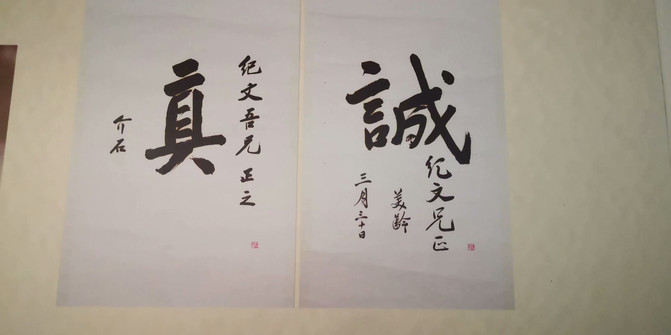 誠
纪文兄正
美齡
三月三十日
纪文吾兄正之
真
介石